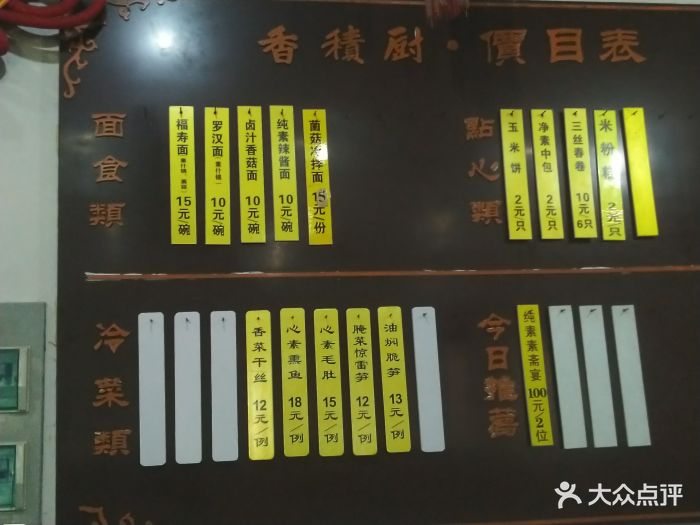 香積厨·價目表
面食類
福寿面 15元/碗
罗汉面 10元/碗
卤汁香菇面 10元/碗
纯素辣酱面 10元/碗
菌菇冷拌面 15元/份
點心類
玉米饼 2元/只
净素中包 2元/只
三丝春卷 10元6只
米粉糕 2元/只
冷菜類
香菜干丝 12元/例
心素熏鱼 18元/例
心素毛肚 15元/例
腌菜惊雷笋 12元/例
油焖脆笋 13元/例
今日推薦
纯素素斋宴 100元/2位
大众点评